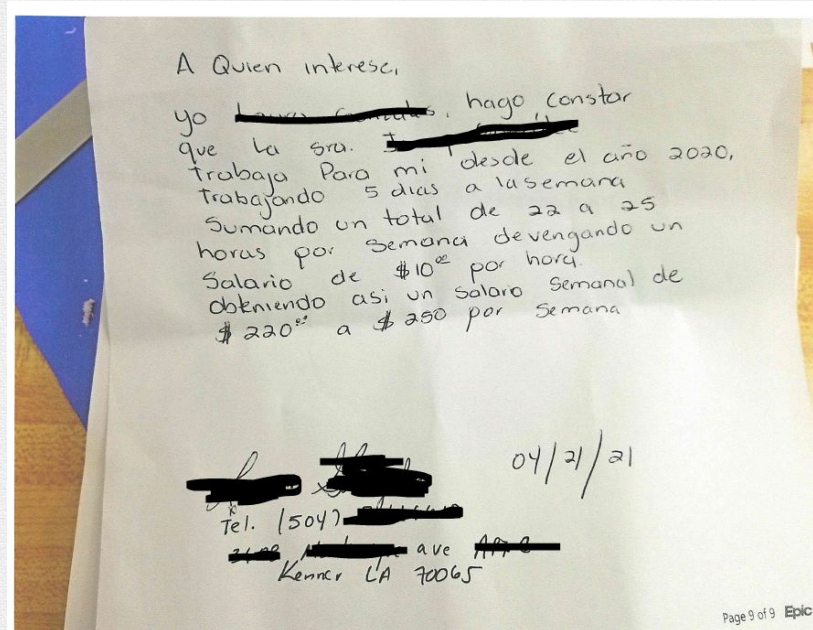 A Quien interese,
yo hago constar
que la sra.
trabaja Para mi desde el año 2020,
Trabajando 5 dias a la semana
Sumando un total de 22 a 25
horas por semana devengando un
Salario de $10⁰⁰ por hora.
obteniendo asi un Salaro Semanal de
$220⁰⁰ a $250 por semana
04/21/21
Tel. (504)
ave
Kenner LA 70065
Page 9 of 9 Epic